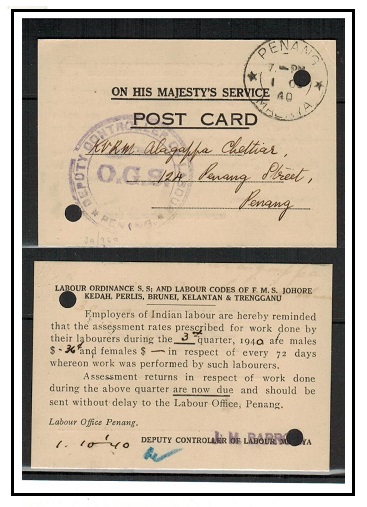 PENANG
7 - PM
1 O
40
MALAYA
ON HIS MAJESTY'S SERVICE
POST CARD
DEPUTY CONTROLLER LABOUR
O.G.S.
PENANG
KVRM. Alagappa Chettiar,
12A Penang Street,
Penang
LABOUR ORDINANCE S.S; AND LABOUR CODES OF F. M. S. JOHORE
KEDAH, PERLIS, BRUNEI, KELANTAN & TRENGGANU
Employers of Indian labour are hereby reminded
that the assessment rates prescribed for work done by
their labourers during the 3rd quarter, 1940 are males
$ -36¢ and females $ — in respect of every 72 days
whereon work was performed by such labourers.
Assessment returns in respect of work done
during the above quarter are now due and should be
sent without delay to the Labour Office, Penang.
Labour Office Penang.
1. 10 '40
DEPUTY CONTROLLER OF LABOUR MALAYA